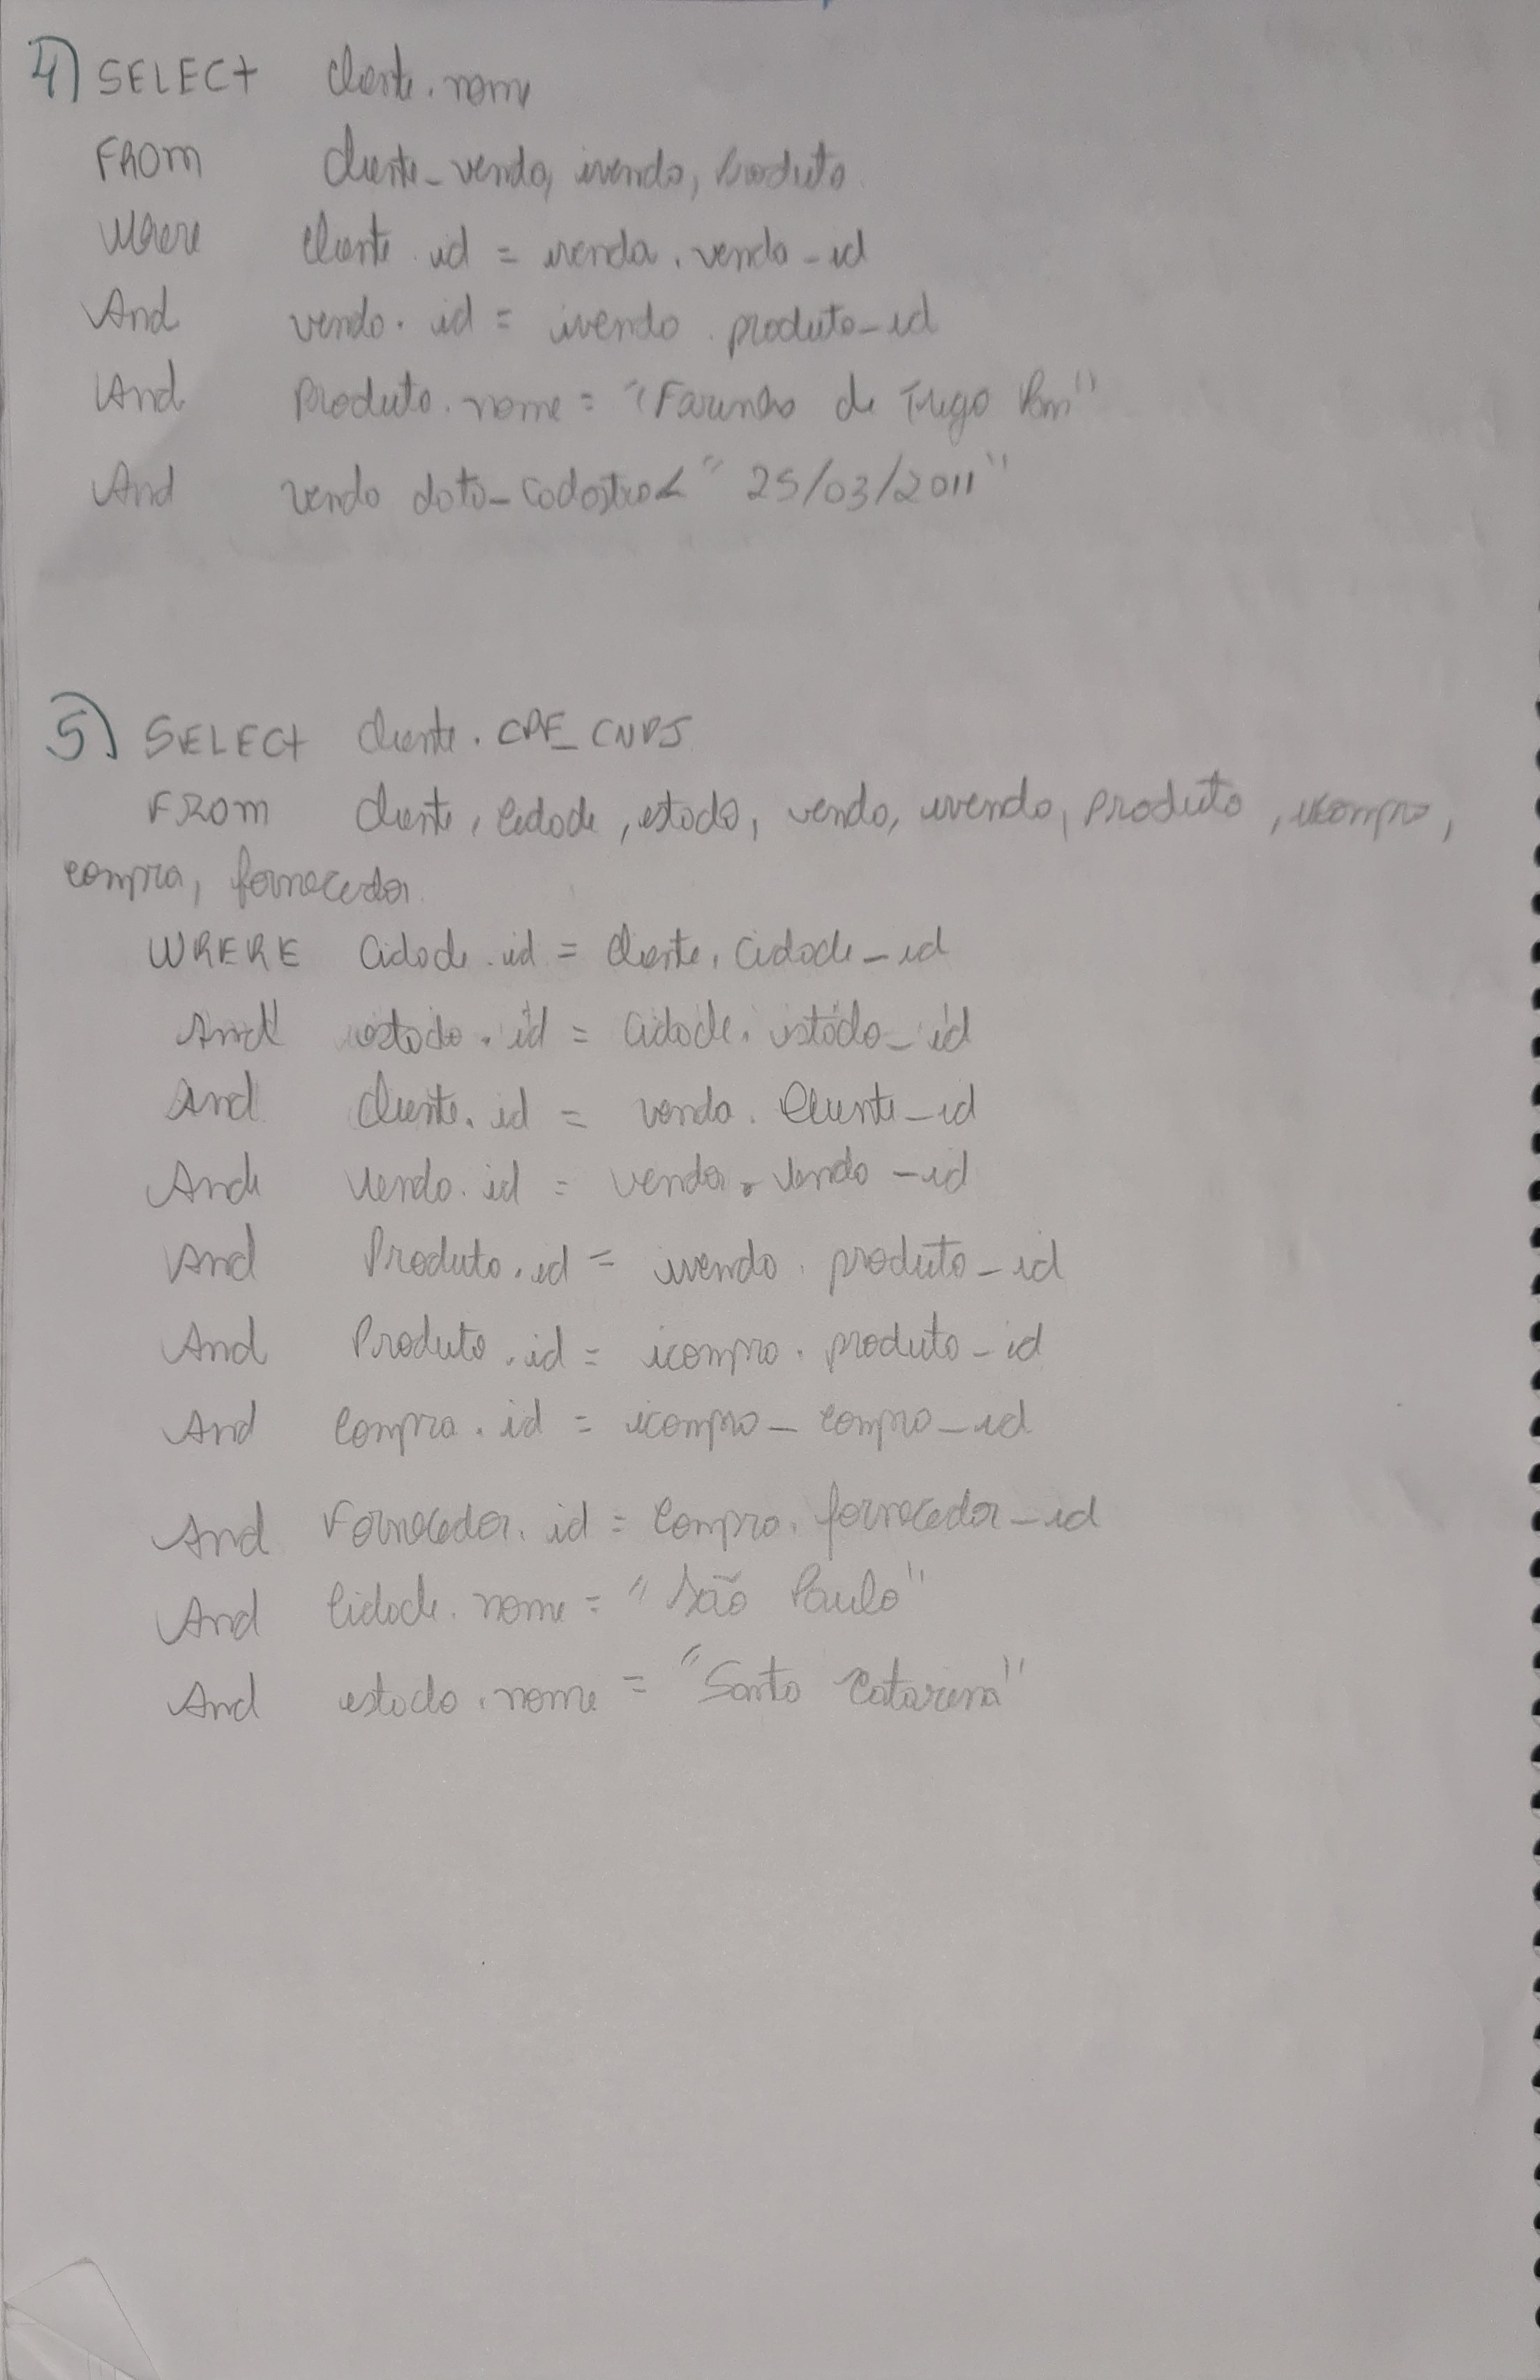 4) SELECT cliente.nome
FROM cliente_venda, ivenda, produto
Where cliente.id = ivenda.venda_id
And venda.id = ivenda.produto_id
And Produto.nome = "Farinha de Trigo
And venda data_cadastro < "25/03/2011"
5) SELECT cliente.CPF_CNPJ
FROM cliente, cidade, estado, venda, ivenda, produto, icompra,
compra, fornecedor
WRERE Cidade.id = cliente.cidade_id
And estado.id = cidade.estado_id
And cliente.id = venda.cliente_id
And venda.id = venda.venda_id
And Produto.id = ivenda.produto_id
And Produto.id = icompra.produto_id
And compra.id = icompra_compra_id
And Fornecedor.id = compra.fornecedor_id
And Cidade.nome = "São Paulo"
And estado.nome = "Santa Catarina"